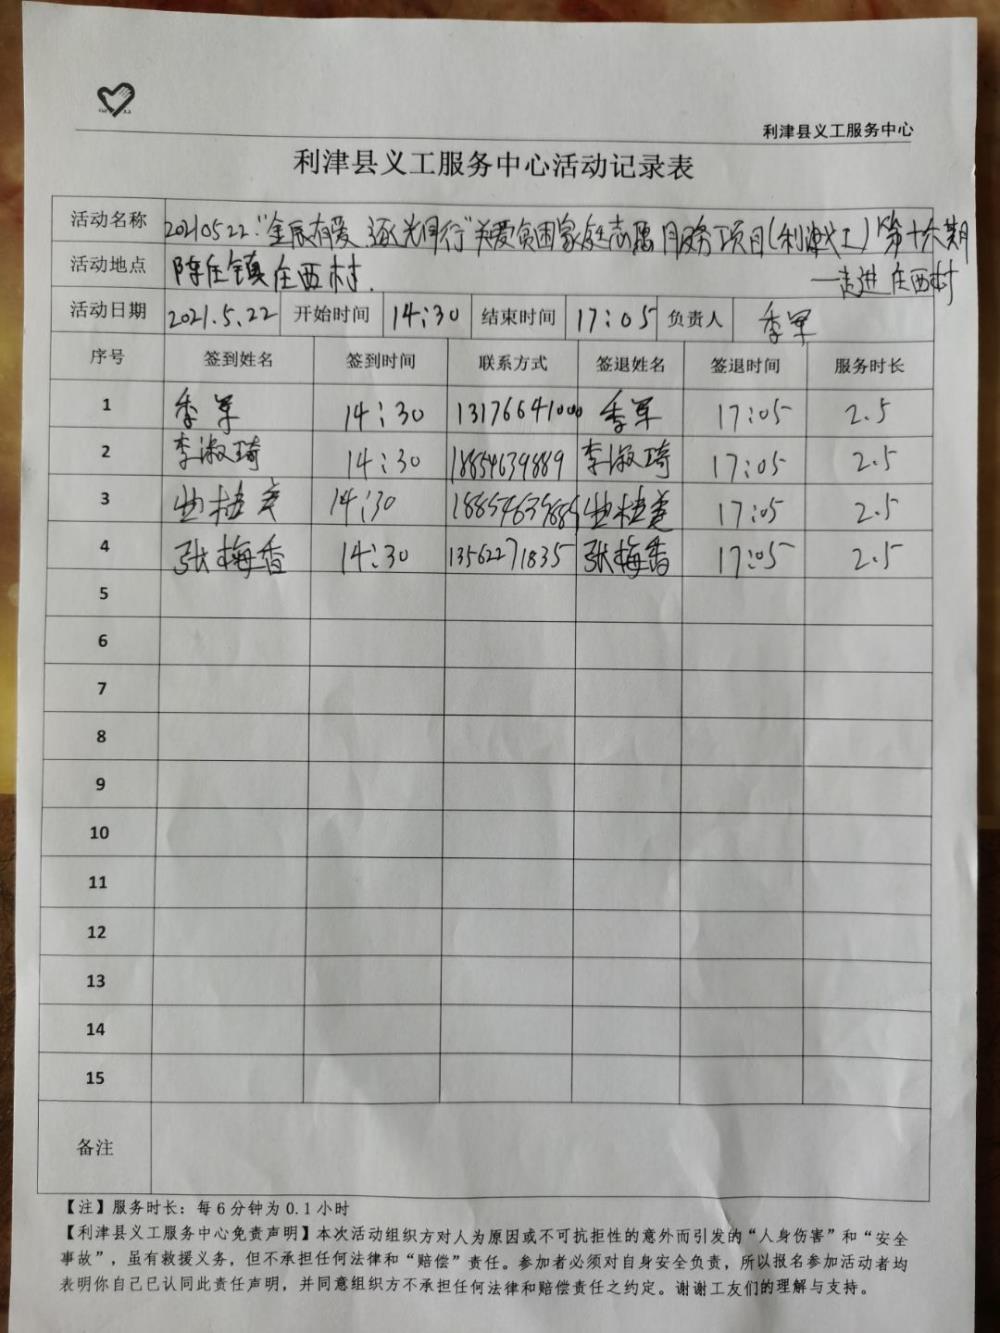 利津县义工服务中心
利津县义工服务中心活动记录表
活动名称 20210522:“金辰有爱 逐光同行”关爱贫困家庭志愿服务项目(利津义工)第十六期
活动地点 陈庄镇庄西村. 一走进庄西村
活动日期 2021.5.22 开始时间 14:30 结束时间 17:05 负责人 季军
序号 签到姓名 签到时间 联系方式 签退姓名 签退时间 服务时长
1 季军 14:30 13176641000 季军 17:05 2.5
2 李淑琦 14:30 18854639889 李淑琦 17:05 2.5
3 14:30 17:05 2.5
4 张梅香 14:30 13562271835 张梅香 17:05 2.5
5
6
7
8
9
10
11
12
13
14
15
备注
【注】服务时长：每6分钟为0.1小时
【利津县义工服务中心免责声明】本次活动组织方对人为原因或不可抗拒性的意外而引发的“人身伤害”和“安全
事故”，虽有救援义务，但不承担任何法律和“赔偿”责任。参加者必须对自身安全负责，所以报名参加活动者均
表明你自己已认同此责任声明，并同意组织方不承担任何法律和赔偿责任之约定。谢谢工友们的理解与支持。